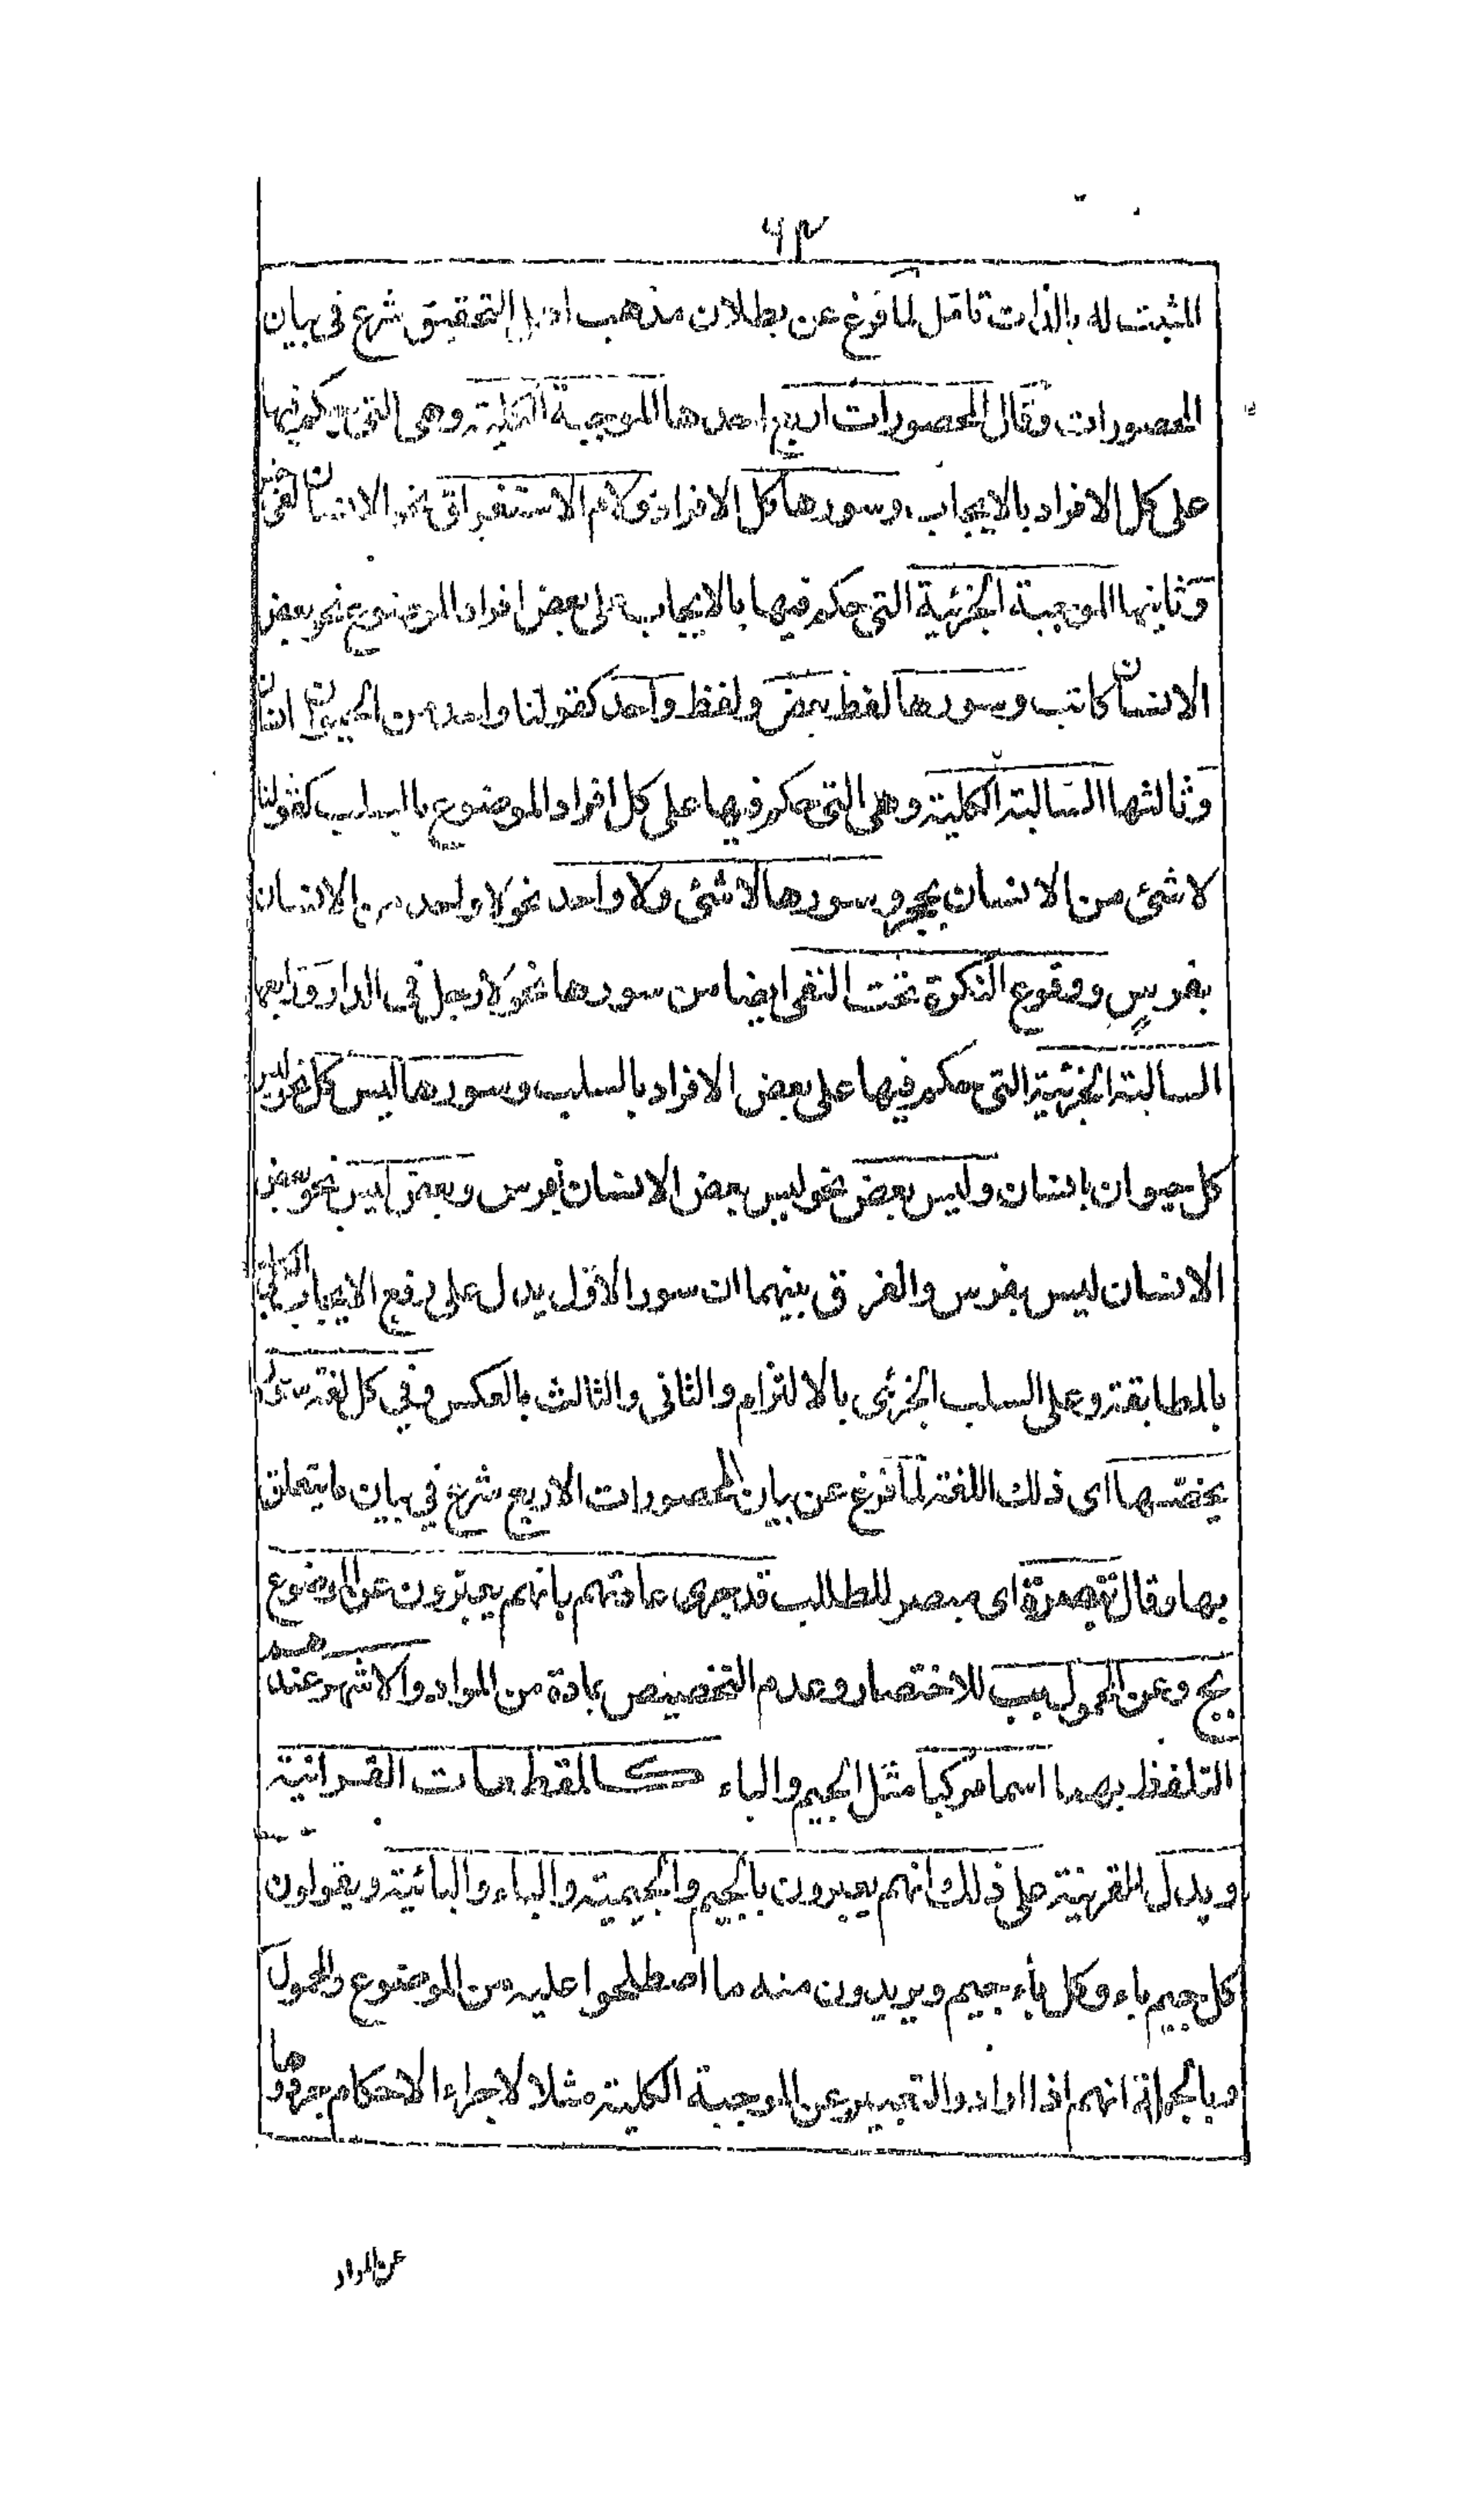 ٦٣
المثبت له بالذات تامل لما فرغ عن بطلان مذهب اهل التحقيق شرع فى بيان
المحصورات وقال المحصورات اربع احدها الموجبة الكلية وهى التى يحكم فيها
على كل الافراد بالايجاب وسورها كل الافرادى ولام الاستغراق نحو ان الانسان لفى خسر
وثانيها الموجبة الجزئية التى حكم فيها بالايجاب على بعض افراد الموضوع نحو بعض
الانسان كاتب وسورها لفظ بعض ولفظ واحد كقولنا واحد من الحيوان انسان
وثالثها السالبة الكلية وهى التى حكم فيها على كل افراد الموضوع بالسلب كقولنا
لا شئ من الانسان بحجر وسورها لا شئ ولا واحد نحو لا واحد من الانسان
بفرسٍ ووقوع النكرة تحت النفى ايضا من سورها نحو لا رجل فى الدار ورابعها
السالبة الجزئية التى حكم فيها على بعض الافراد بالسلب وسورها ليس كل نحو ليس
كل حيوان بانسان وليس بعض نحو ليس بعض الانسان بفرس وبعض ليس نحو بعض
الانسان ليس بفرس والفرق بينهما ان سور الاوّل يدل على رفع الايجاب الكلى
بالمطابقة وعلى السلب الجزئى بالالتزام والثانى والثالث بالعكس وفى كل لغة سور
يخصّها اى ذلك اللغة لما فرغ عن بيان المحصورات الاربع شرع فى بيان ما يتعلق
بها وقال تبصرة اى مبصر للطالب قد جرى عادتهم بانهم يعبّرون عن الموضوع
بج وعن المحمول ببب للاختصار وعدم التخصيص بمادة من المواد والاشهر عندهم
التلفظ بهما اسما مركبا مثل الجيم والباء كالمقطعات القرانية
ويدل القرينة على ذلك وانهم يعبرون بالجيم والجيمية والباء والبائية ويقولون
كل جيم باء وكل باء جيم ويريدون منه ما اصطلحوا عليه من الموضوع والمحمول
وبالجملة انهم اذا ارادوا التعبير عن الموجبة الكلية مثلا لاجراء الاحكام جردوها
عن المواد